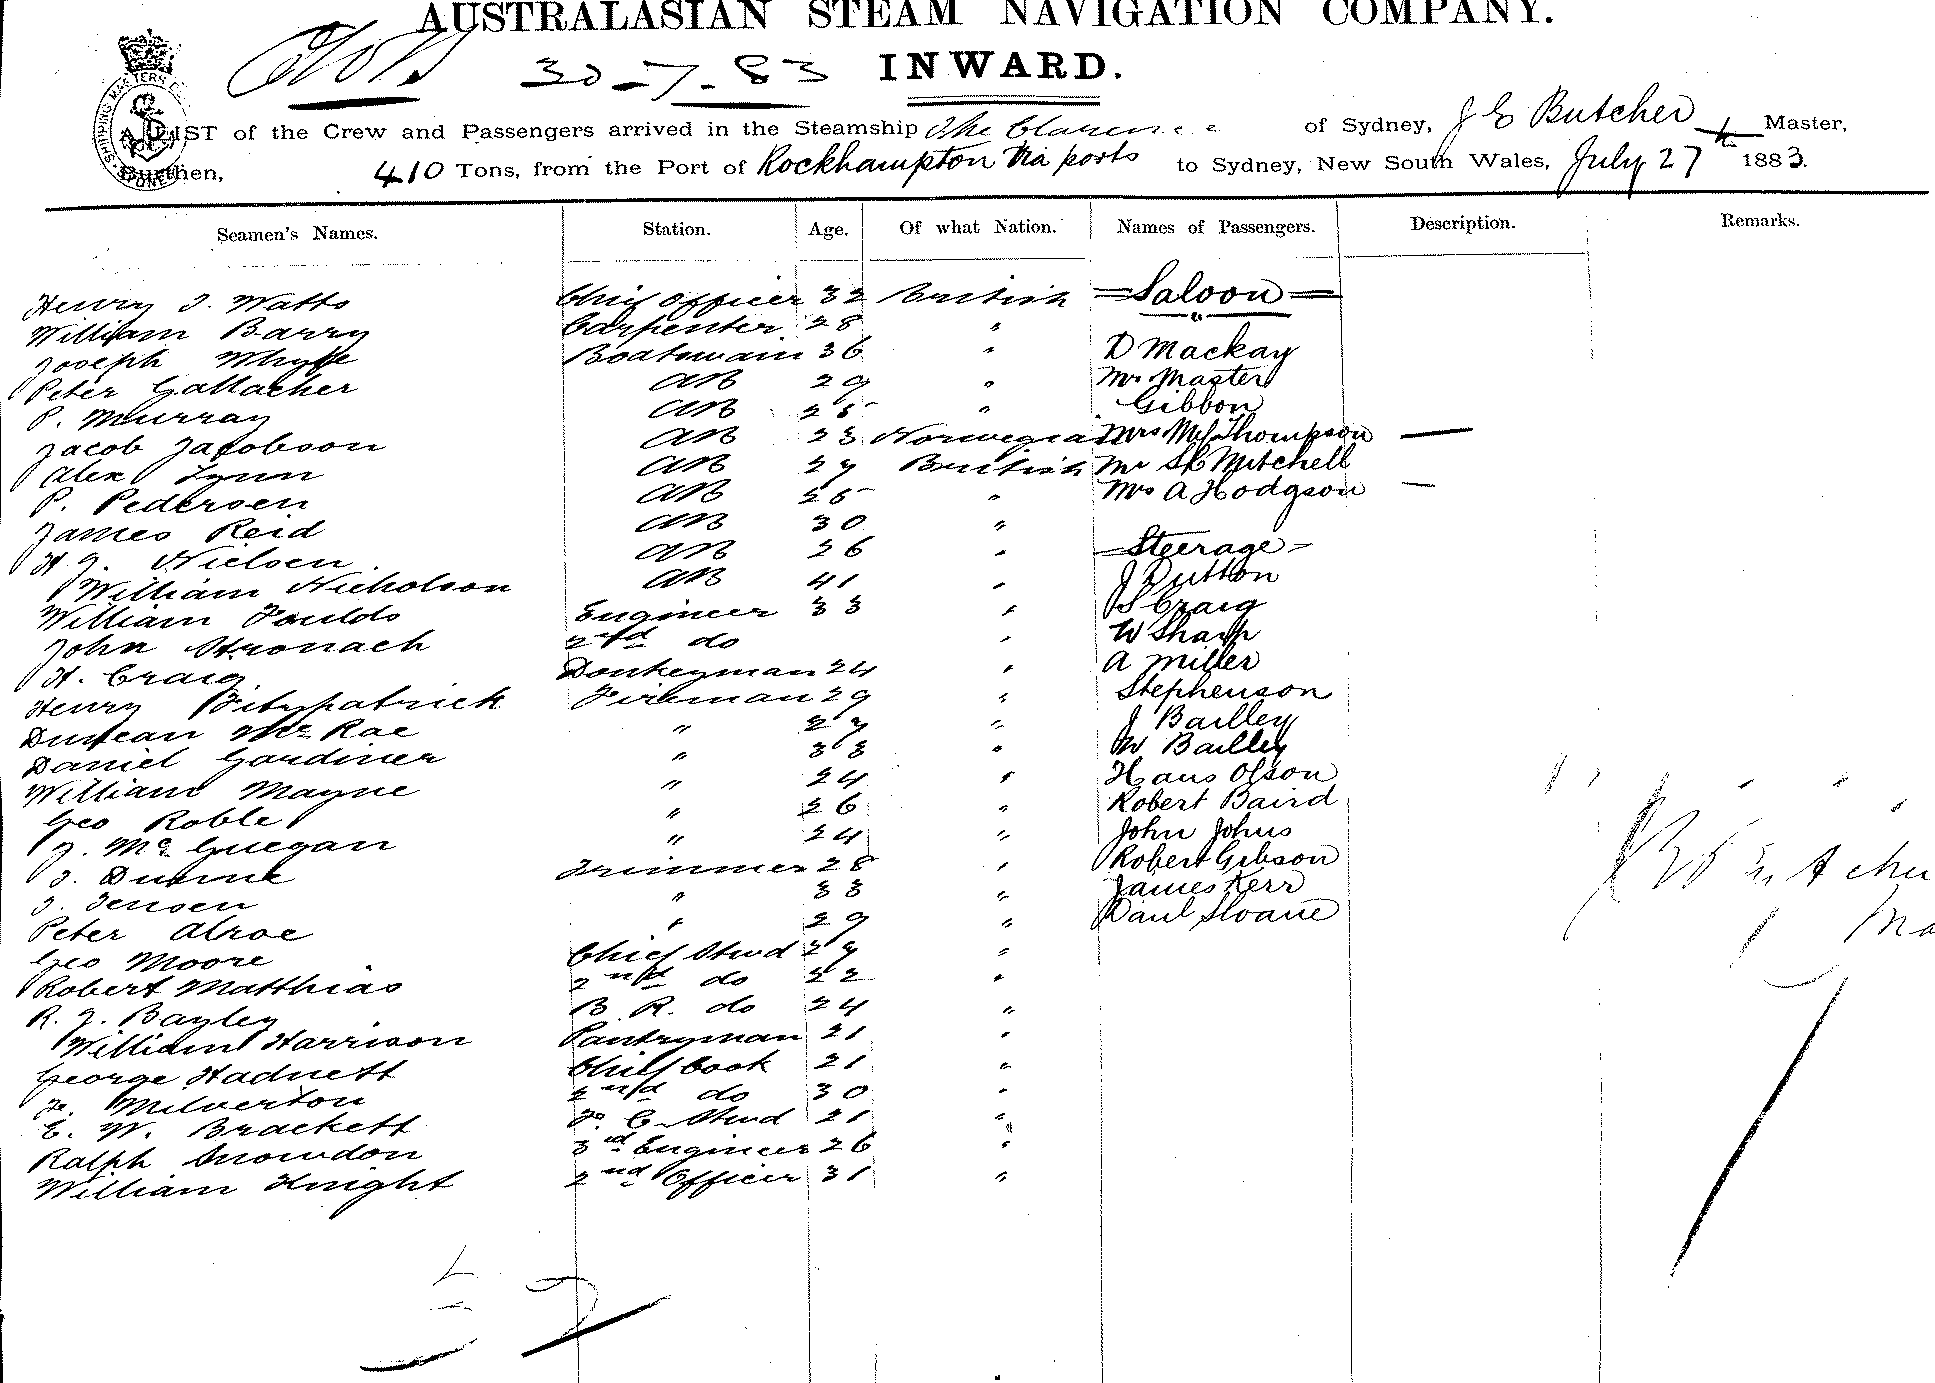 AUSTRALASIAN STEAM NAVIGATION COMPANY.
30-7-83 INWARD.
A LIST of the Crew and Passengers arrived in the Steamship The Clarence of Sydney, J E Butcher Master,
Burthen, 410 Tons, from the Port of Rockhampton Via ports to Sydney, New South Wales, July 27th 1883.
Seamen's Names. Station. Age. Of what Nation. Names of Passengers. Description. Remarks.
Henry J. Watts Chief Officer 32 British Saloon
William Barry Carpenter 28 "
Joseph Whyte Boatswain 36 " D Mackay
Peter Gallacher AB 29 " Mr Master
P. Murray AB 25 " Gibbon
Jacob Jacobson AB 23 Norwegian Mrs Thompson
Alex Lynn AB 29 British Mr Mitchell
P. Pedersen AB 25 " Mrs A Hodgson
James Reid AB 30 "
H. J. Nielsen AB 26 " Steerage
William Nicholson AB 41 " J Dutton
William Foulds Engineer 33 " S Craig
John Stronach 2nd do " W Sharp
H. Craig Donkeyman 24 " A Miller
Henry Fitzpatrick Fireman 29 " Stephenson
Duncan McRae " 27 " J Bailley
Daniel Gardiner " 33 " M Bailley
William Mayne " 24 " Hans Olson
Geo Roble " 26 " Robert Baird
J. McGuegan " 24 " John Johns
J. Trimmer 28 " Robert Gibson
J. Jensen " 33 " James Kerr
Peter " 29 " Paul Sloane
Geo Moore Chief Stwd 29 "
Robert Matthias 2nd do 22 "
R. J. Bayley B. R. do 24 "
William Harrison Pantryman 21 "
George Hadnett Chief Cook 21 "
Fr. Milverton 2nd do 30 "
E. W. Brackett F. C. Stwd 21 "
Ralph Snowdon 3rd Engineer 26 "
William Knight 2nd Officer 31 "